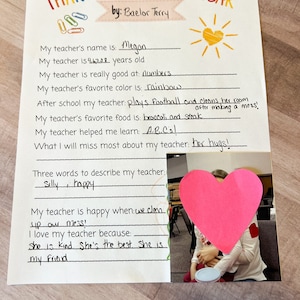 by: Baelor Terry
My teacher's name is Megan
My teacher is years old
My teacher is really good at numbers
My teacher's favorite color is rainbow
After school my teacher plays football and cleans her room
after making a mess!
My teacher's favorite food is broccoli and steak
My teacher helped me learn A,B,C's!
What I will miss most about my teacher: her hugs!
Three words to describe my teacher:
silly, happy
My teacher is happy when we clean
up our mess!
I love my teacher because:
she is kind She's the best She is
my friend